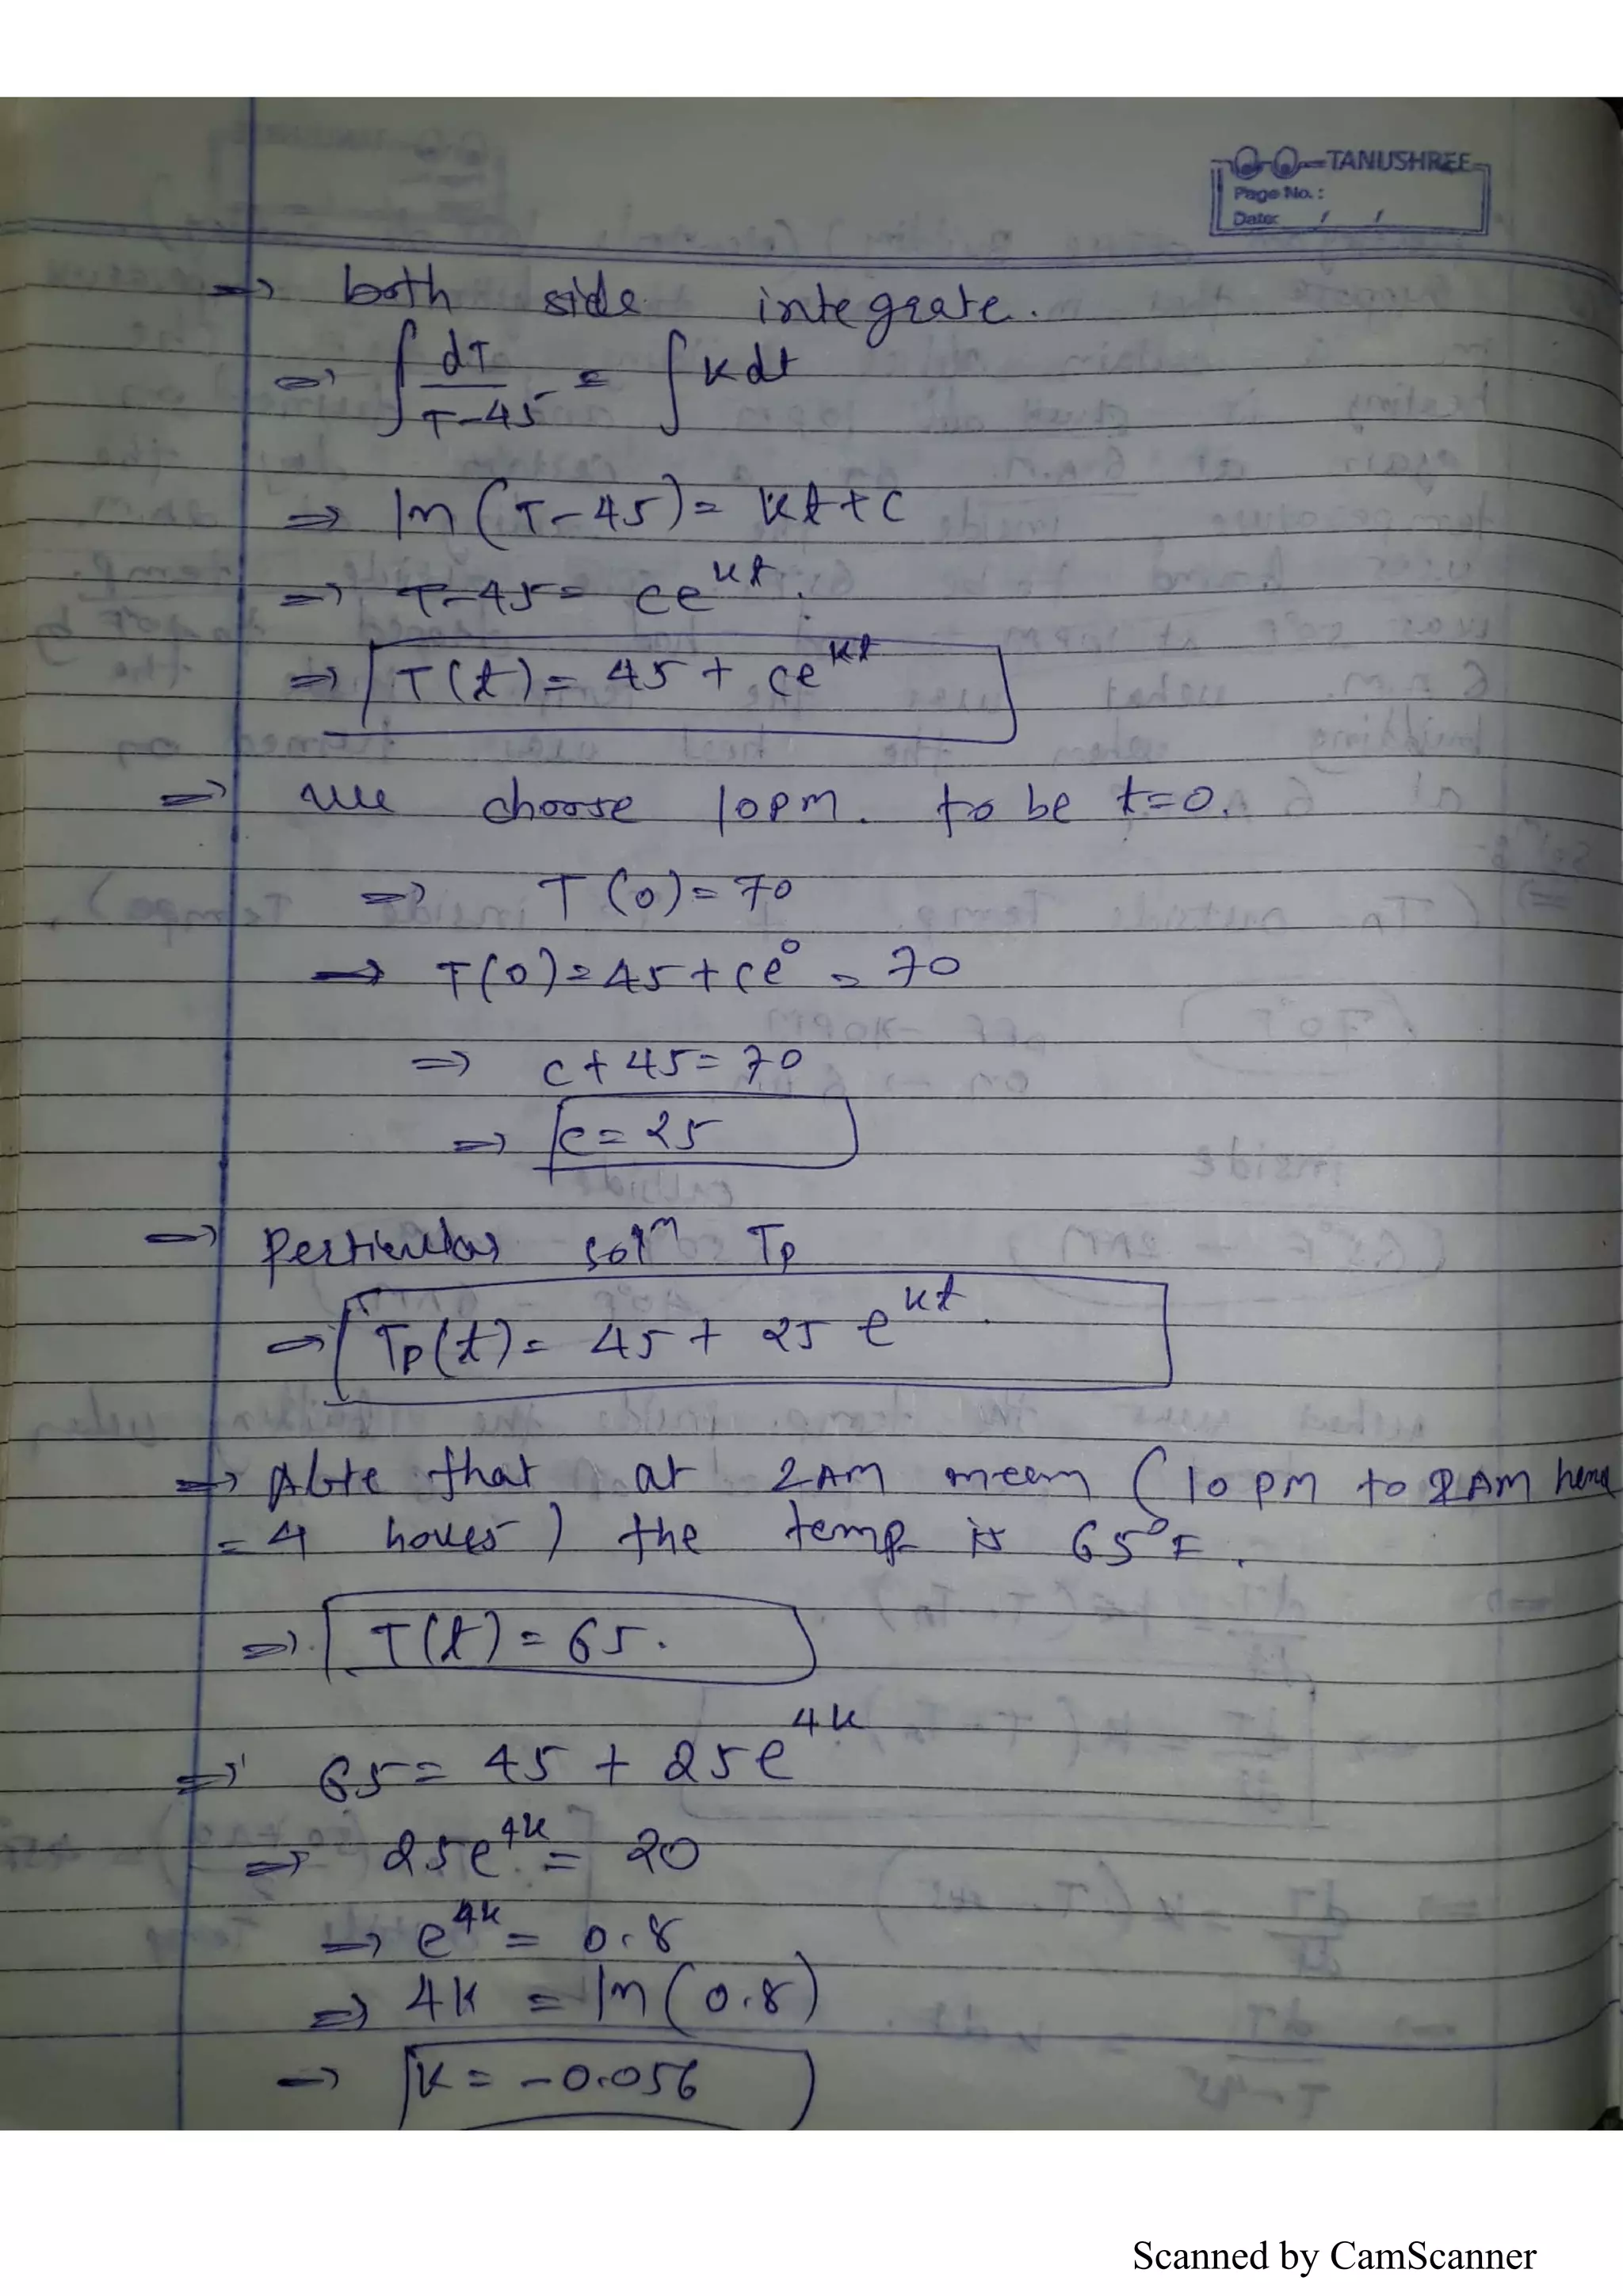 TANUSHREE
Page No.:
Date: / /
⇒ both side integrate.
⇒ ∫ dT/T-45 = ∫ k dt
⇒ ln (T-45) = kt + c
⇒ T-45 = ce^kt.
⇒ T(t) = 45 + ce^kt
⇒ we choose 10PM. to be t=0.
⇒ T(0) = 70
⇒ T(0) = 45 + ce^0 = 70
⇒ c + 45 = 70
⇒ c = 25
⇒ Perticular sol^n Tp
⇒ Tp(t) = 45 + 25 e^kt.
⇒ that at 2AM meem (10 PM to 2AM hence
= 4 hours) the temp is 65°F.
⇒ T(t) = 65.
⇒ 65 = 45 + 25e^4k
⇒ 25e^4k = 20
⇒ e^4k = 0.8
⇒ 4k = ln(0.8)
⇒ k = -0.056
Scanned by CamScanner